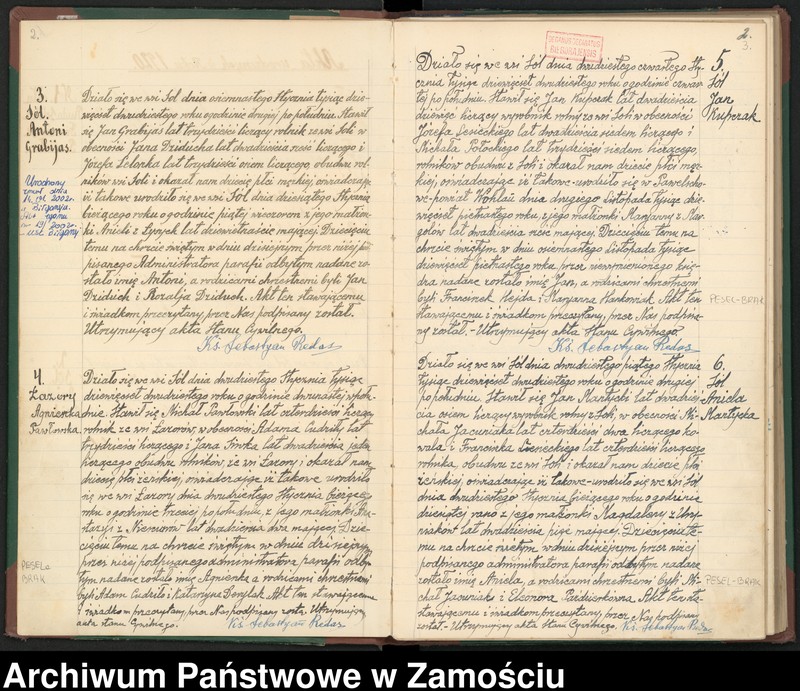 2.
3.
Sól.
Antoni
Grabijas.
Działo się we wsi Sól dnia osiemnastego Stycznia tysiąc dzie-
więćset dwudziestego roku o godzinie drugiej po południu. Stawił
się Jan Grabijas lat trzydzieści liczący rolnik ze wsi Soli w
obecności Jana Dziducha lat dwadzieścia sześć liczącego i
Józefa Lelonka lat trzydzieści osiem liczącego, obudwu rol-
ników ze wsi Soli i okazał nam dziecię płci męskiej, oświadczając
iż takowe urodziło się we wsi Sól dnia dziesiątego Stycznia
bieżącego roku o godzinie piątej wieczorem z jego małżon-
ki Anieli z lat dziewiętnaście mającej. Dziecięciu
temu na chrzcie świętym w dniu dzisiejszym, przez niżej pod-
pisanego Administratora parafii odbytym nadane zo-
stało imię Antoni, a rodzicami chrzestnemi byli Jan
Dziduch i Rozalja Dziduch. Akt ten stawającemu
i świadkom przeczytany, przez Nas podpisany został.
Utrzymujący akta Stanu Cywilnego.
Ks. Sebastyan Redas
4.
Łazory
Agnieszka
Pawłowska.
Działo się we wsi Sól dnia dwudziestego Stycznia tysiąc
dziewięćset dwudziestego roku o godzinie dwunastej w połu-
dnie. Stawił się Michał Pawłowski lat czterdzieści liczący
rolnik ze wsi Łazorów, w obecności Adama Cudziło lat
trzydzieści liczącego i Jana Siwka lat dwadzieścia jeden
liczącego obudwu rolników, ze wsi Łazory i okazał nam
dziecię płci żeńskiej, oświadczając iż takowe urodziło
się we wsi Łazory dnia dwudziestego Stycznia bieżącego
roku o godzinie trzeciej po południu, z jego małżonki Ana-
stazji z lat dwadzieścia dwa mającej. Dzie-
cięciu temu na chrzcie świętym w dniu dzisiejszym
przez niżej podpisanego Administratora parafii odby-
tym nadane zostało imię Agnieszka a rodzicami chrzestnemi
byli Adam Cudziło i Katarzyna Akt ten stawającemu
i świadkom przeczytany, przez Nas podpisany został. Utrzymujący
akta stanu Cywilnego. Ks. Sebastyan Redas
PESEL-
BRAK
2.
3.
BIŁGORAJSKIE
5.
Sól
Jan
Kuperak
Działo się we wsi Sól dnia dwudziestego czwartego Sty-
cznia tysiąc dziewięćset dwudziestego roku o godzinie czwar-
tej po południu. Stawił się Jan Kuperak lat dwadzieścia
dziewięć liczący wyrobnik rolny ze wsi Soli w obecności
Józefa Lesieckiego lat dwadzieścia siedem liczącego i
Michała Płockiego lat trzydzieści siedem liczącego,
rolników obudwu z Soli i okazał nam dziecię płci mę-
skiej, oświadczając iż takowe urodziło się w
dnia drugiego listopada tysiąc dzie-
więćset piętnastego roku, z jego małżonki Maryanny z Mar-
golów lat dwadzieścia sześć mającej. Dziecięciu temu na
chrzcie świętym, w dniu osiemnastego listopada tysiąc
dziewięćset piętnastego roku, przez księ-
dza nadane zostało imię Jan, a rodzicami chrzestnemi
byli Franciszek i Maryanna Akt ten
stawającemu i świadkom przeczytany, przez Nas podpisa-
ny został. - Utrzymujący akta Stanu Cywilnego.
Ks. Sebastyan Redas
PESEL-BRAK
6.
Sól
Aniela
Martycka
Działo się we wsi Sól dnia dwudziestego piątego Stycznia
tysiąc dziewięćset dwudziestego roku o godzinie drugiej
po południu. Stawił się Jan Martycki lat dwadzieś-
cia osiem liczący wyrobnik rolny z Soli, w obecności Mi-
chała Jacuniaka lat czterdzieści dwa liczącego ko-
wala i Franciszka lat czterdzieści liczącego
rolnika, obudwu ze wsi Soli i okazał nam dziecię płci
żeńskiej, oświadczając iż takowe urodziło się we wsi Sól
dnia dwudziestego Stycznia bieżącego roku o godzinie
dziesiątej rano z jego małżonki Magdaleny z
lat dwadzieścia pięć mającej. Dziecięciu te-
mu na chrzcie świętym w dniu dzisiejszym przez niżej
podpisanego administratora parafii odbytym nadane
zostało imię Aniela, a rodzicami chrzestnemi byli Mi-
chał Jacuniak i Eleonora Akt ten
stawającemu i świadkom przeczytany, przez Nas podpisany
został. - Utrzymujący akta Stanu Cywilnego. Ks. Sebastyan Redas
PESEL-BRAK
Archiwum Państwowe w Zamościu